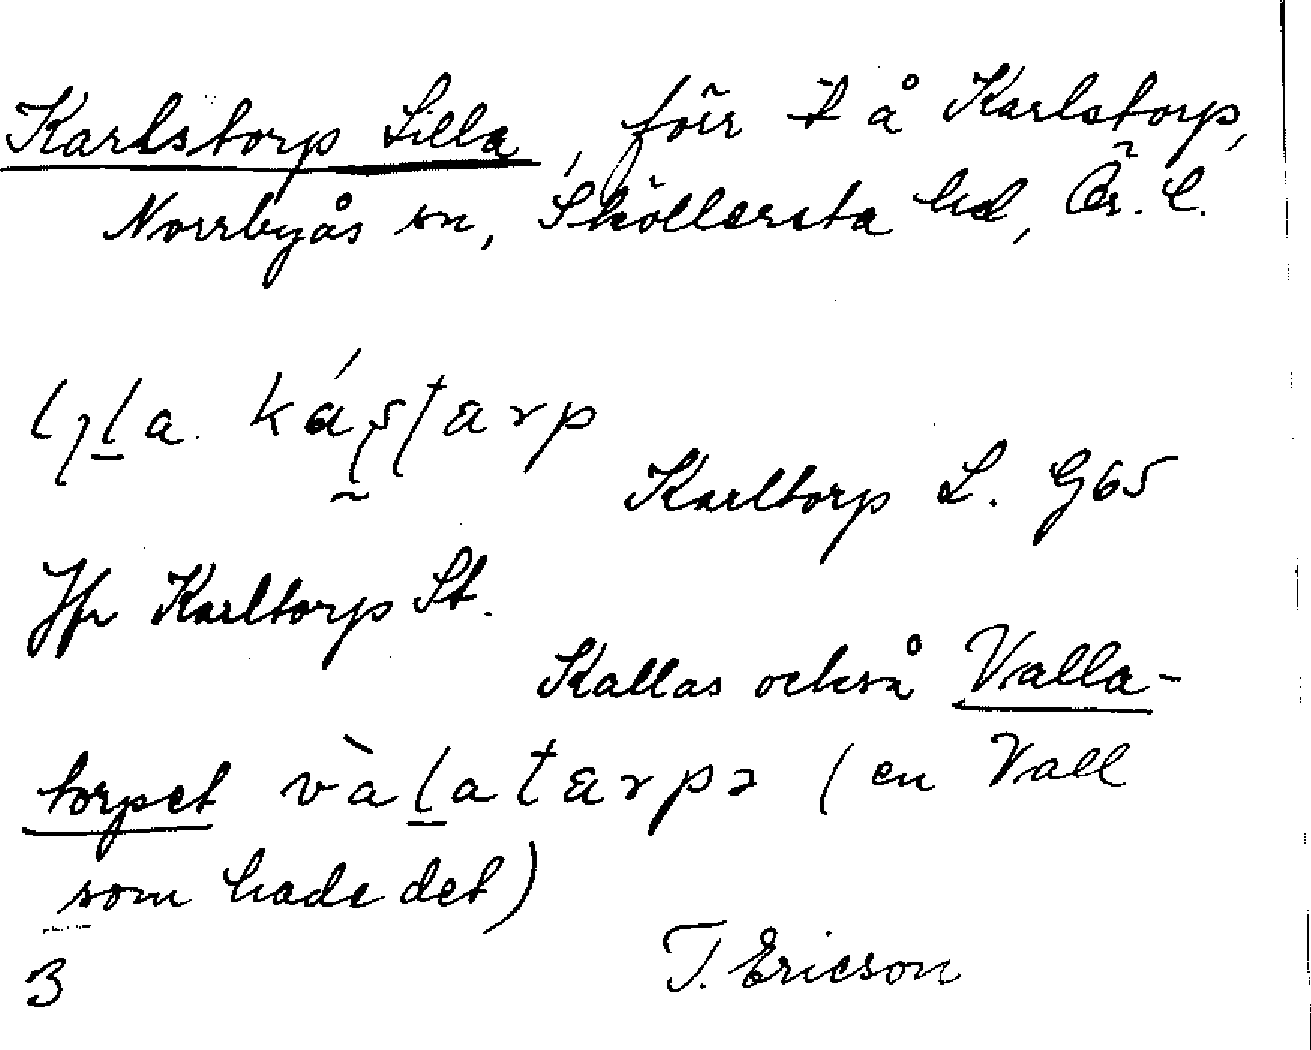 Karlstorp Lilla, förr t å Karlstorp,
Norrbyås sn, Sköllersta hd, Ör. l.
Karltorp L. G65
Jfr Karltorp St.
Kallas också Valla-
torpet vàlatarpə (en Vall
som hade det)
3 T. Ericson